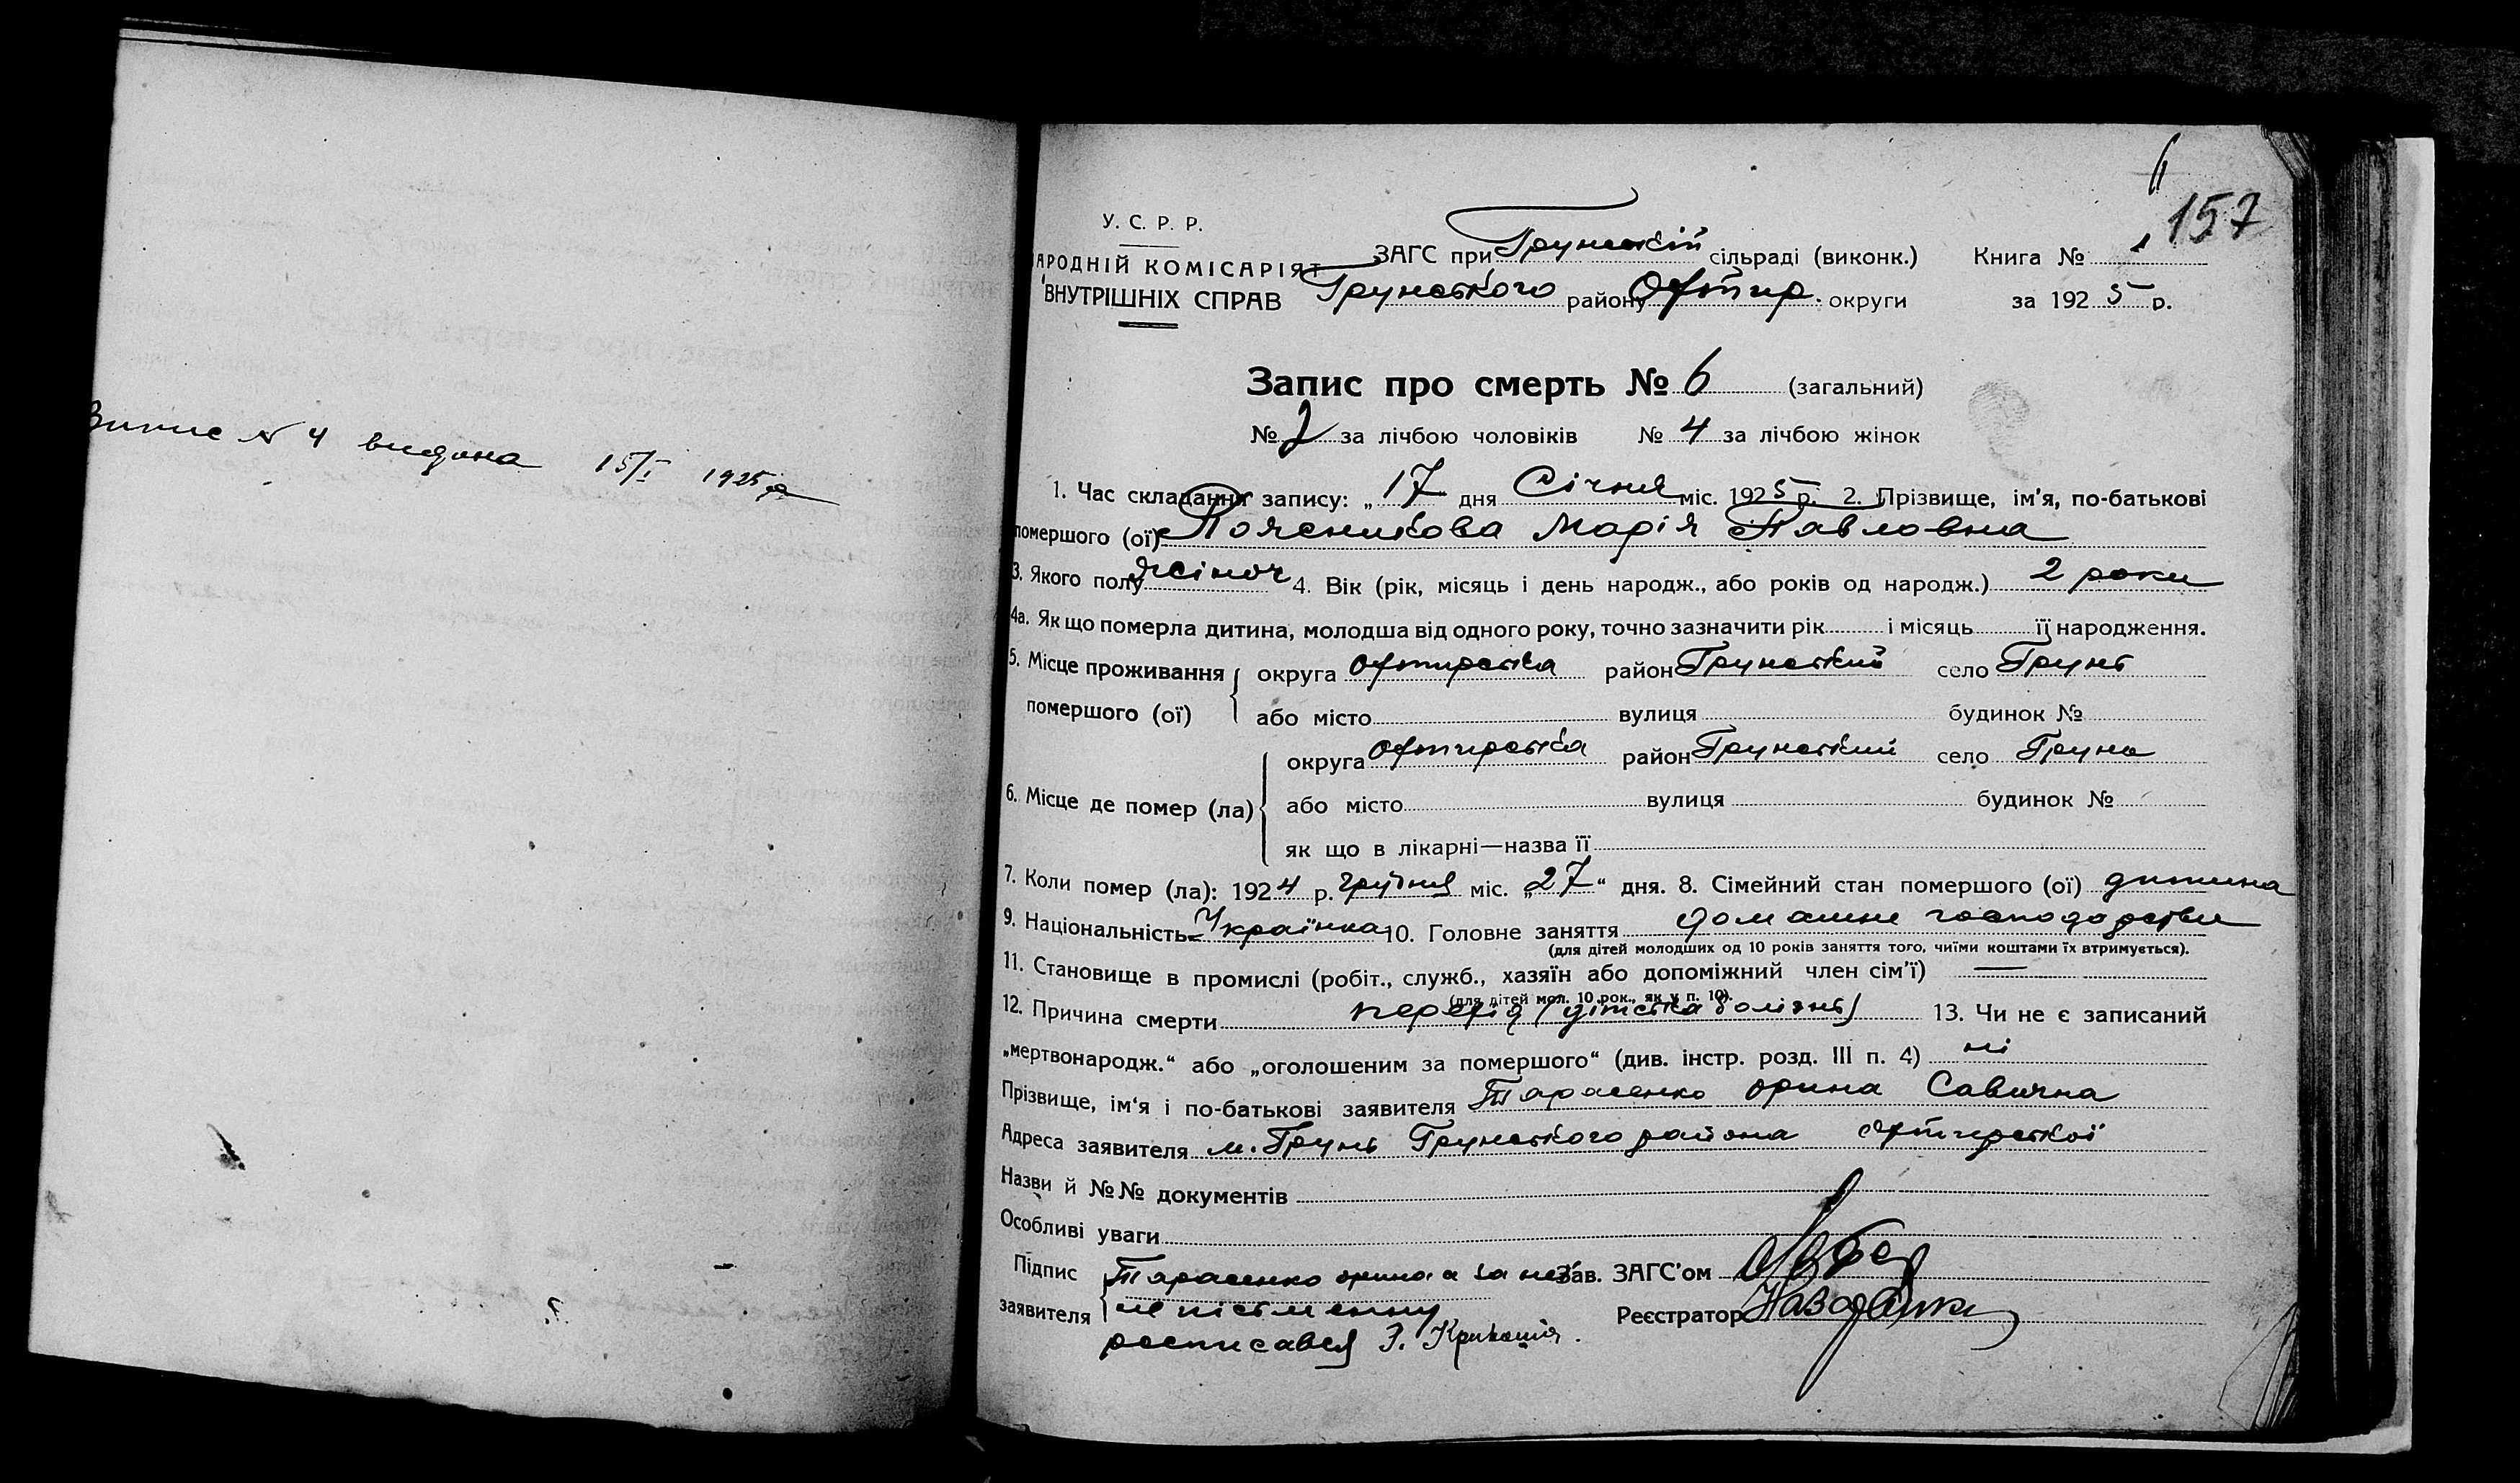 Запис N 4 видана 15/I 1925 р
157
У. С. Р. Р.
НАРОДНІЙ КОМІСАРІЯТ
ВНУТРІШНІХ СПРАВ
ЗАГС при Грунській сільраді (виконк.) Книга № 1
Грунського району Охтир. округи за 1925 р.
Запис про смерть № 6 (загальний)
№ 2 за лічбою чоловіків № 4 за лічбою жінок
1. Час складання запису: „17 дня Січня міс. 1925 р. 2. Прізвище, ім'я, по-батькові
помершого (ої) Поясникова Марія Павловна
3. Якого полу жіноч 4. Вік (рік, місяць і день народж., або років од народж.) 2 роки
4а. Як що померла дитина, молодша від одного року, точно зазначити рік і місяць її народження.
5. Місце проживання округа Охтирська район Грунський село Грунь
помершого (ої) або місто вулиця будинок №
округа Охтирська район Грунський село Грунь
6. Місце де помер (ла) або місто вулиця будинок №
як що в лікарні—назва її
7. Коли помер (ла): 1924 р. грудня міс. „27“ дня. 8. Сімейний стан помершого (ої) дитина
9. Національність Українка 10. Головне заняття домашне господарство
(для дітей молодших од 10 років заняття того, чиїми коштами їх втримується).
11. Становище в промислі (робіт., служб., хазяїн або допоміжний член сім'ї) —
(для дітей мол. 10 рок., як у п. 10).
12. Причина смерти (дітська болізнь) 13. Чи не є записаний
„мертвонародж.“ або „оголошеним за помершого“ (див. інстр. розд. III п. 4) ні
Прізвище, ім'я і по-батькові заявителя Тарасенко Орина Савична
Адреса заявителя м. Грунь Грунського района Охтирської
Назви й №№ документів
Особливі уваги
Підпис Тарасенко Орина а за неї Зав. ЗАГС'ом
заявителя не пісьменну Реєстратор
росписався З.